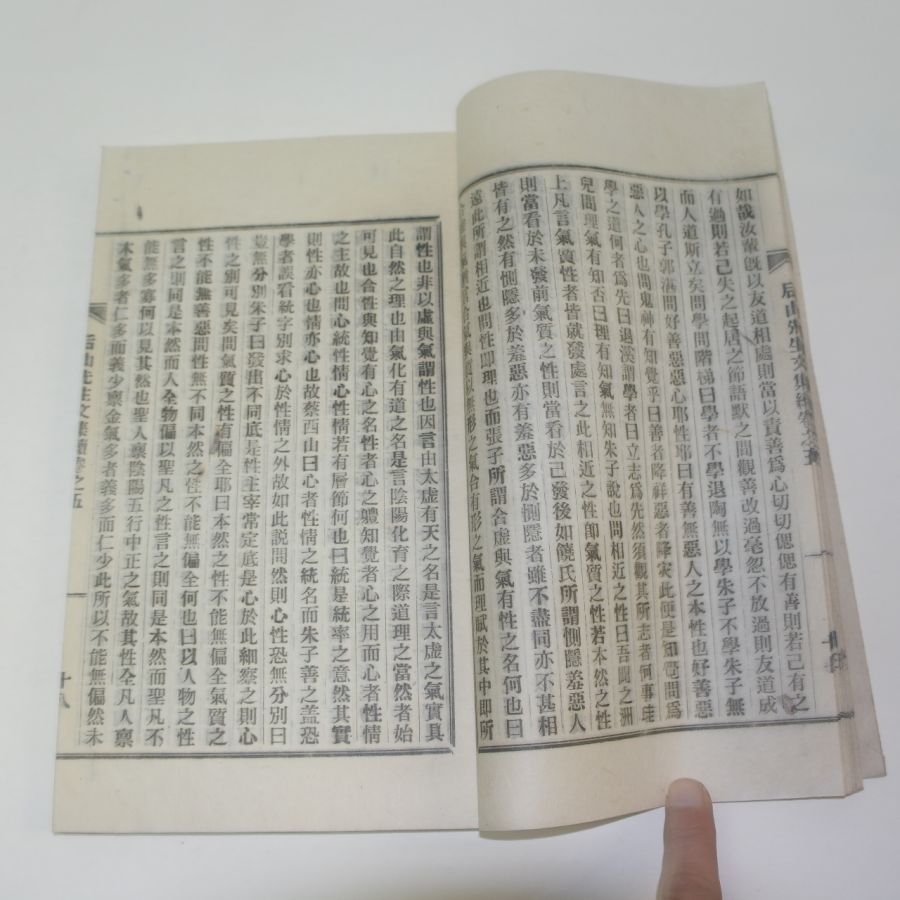 后山先生文集續卷之五
如哉汝輩旣以友道相處則當以責善爲心切切偲偲有善則若己有之
有過則若己失之起居之節語默之間觀善改過毫忽不放過則友道成
而人道斯立矣問學問階梯曰學者不學退陶無以學朱子不學朱子無
以學孔子郭滿問好善惡惡心耶性耶曰有善無惡人之本性也好善惡
惡人之心也問鬼神有知覺乎曰善者降祥惡者降灾此便是知覺問爲
學之道何者爲先曰退溪謂學者曰立志爲先然須觀其所志者何事
兒問理氣有知否曰理有知氣無知朱子說也問相近之性曰吾聞之洲
上凡言氣質性者皆就發處言之此相近之性卽氣質之性若本然之性
則當看於未發前氣質之性則當看於已發後如饒氏所謂惻隱羞惡人
皆有之然有惻隱多於羞惡亦有羞惡多於惻隱者雖不盡同亦不甚相
遠此所謂相近也問性卽理也而張子所謂合虛與氣有性之名何也曰
形之氣合有形之氣而理賦於其中卽所
謂性也非以虛與氣謂性也因言由太虛有天之名是言太虛之氣實具
此自然之理也由氣化有道之名是言陰陽化育之際道理之當然者始
可見也合性與知覺有心之名性者心之軆知覺者心之用而心者性情
之主故也問心統性情心性情若有層節何也曰統是統率之意然其實
則性亦心也情亦心也故蔡西山曰心者性情之統名而朱子善之蓋恐
學者誤看統字別求心於性情之外故如此說問然則心性恐無分別曰
豈無分別朱子曰發出不同底是性主宰常定底是心於此細察之則心
性之別可見矣問氣質之性有偏全耶曰本然之性不能無偏全氣質之
性不能無善惡問性無不同本然之性不能無偏全何也曰以人物之性
言之則同是本然而人全物偏以聖凡之性言之則同是本然而聖凡不
能無多寡何以見其然也聖人禀陰陽五行中正之氣故其性全凡人禀
木氣多者仁多而義少禀金氣多者義多而仁少此所以不能無偏然未
后山先生文集續卷之五
十八